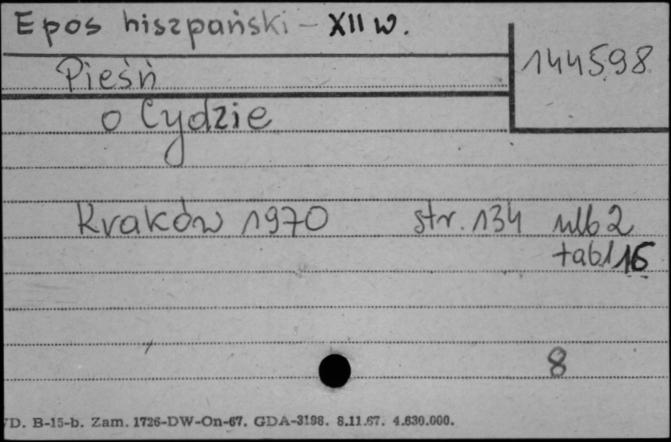 Epos hiszpański - XII w.
144598
Pieśń
o Cydzie
Kraków 1970 str. 134 nlb 2
tabl 16
8
D. B-15-b. Zam. 1726-DW-On-67. GDA-3198. 8.11.67. 4.630.000.